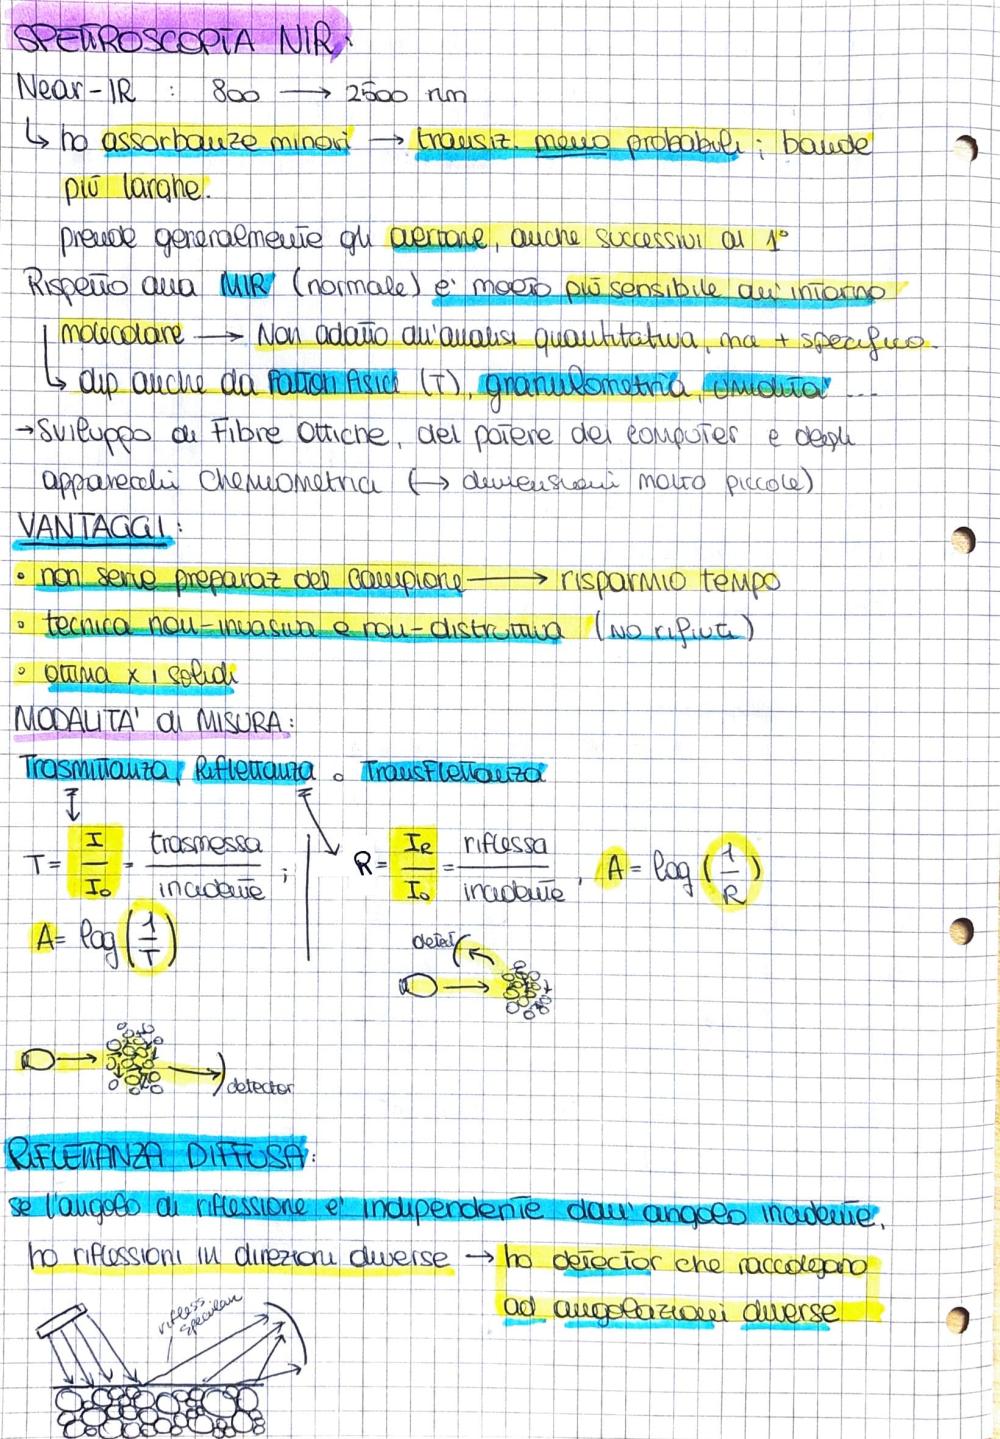 SPETTROSCOPIA NIR:
Near-IR : 800 → 2500 nm
↳ ho assorbanze minori → transiz. meno probabili ; bande
più larghe.
prende generalmente gli overtone, anche successivi al 1°
Rispetto alla MIR (normale) e' molto più sensibile all'intorno
molecolare → Non adatto all'analisi quantitativa, ma + specifico.
↳ dip anche da Fattori fisici (T), granulometria, umidità ...
→ Sviluppo di Fibre Ottiche, del potere dei computer e degli
apparecchi Chemiometrici (→ dimensioni molto piccole)
VANTAGGI:
• non serve preparaz del campione → risparmio tempo
• tecnica non-invasiva e non-distruttiva (No rifiuti)
• ottima x i solidi
MODALITA' di MISURA:
Trasmittanza, Riflettanza o Transflettanza
T = I/I₀ = trasmessa/incidente ;
R = I_R/I₀ = riflessa/incidente , A = log (1/R)
A = log (1/T)
detect
detector
RIFLETTANZA DIFFUSA:
se l'angolo di riflessione e' indipendente dall'angolo incidente.
ho riflessioni in direzioni diverse → ho detector che raccolgono
ad angolazioni diverse
rifless
speculare